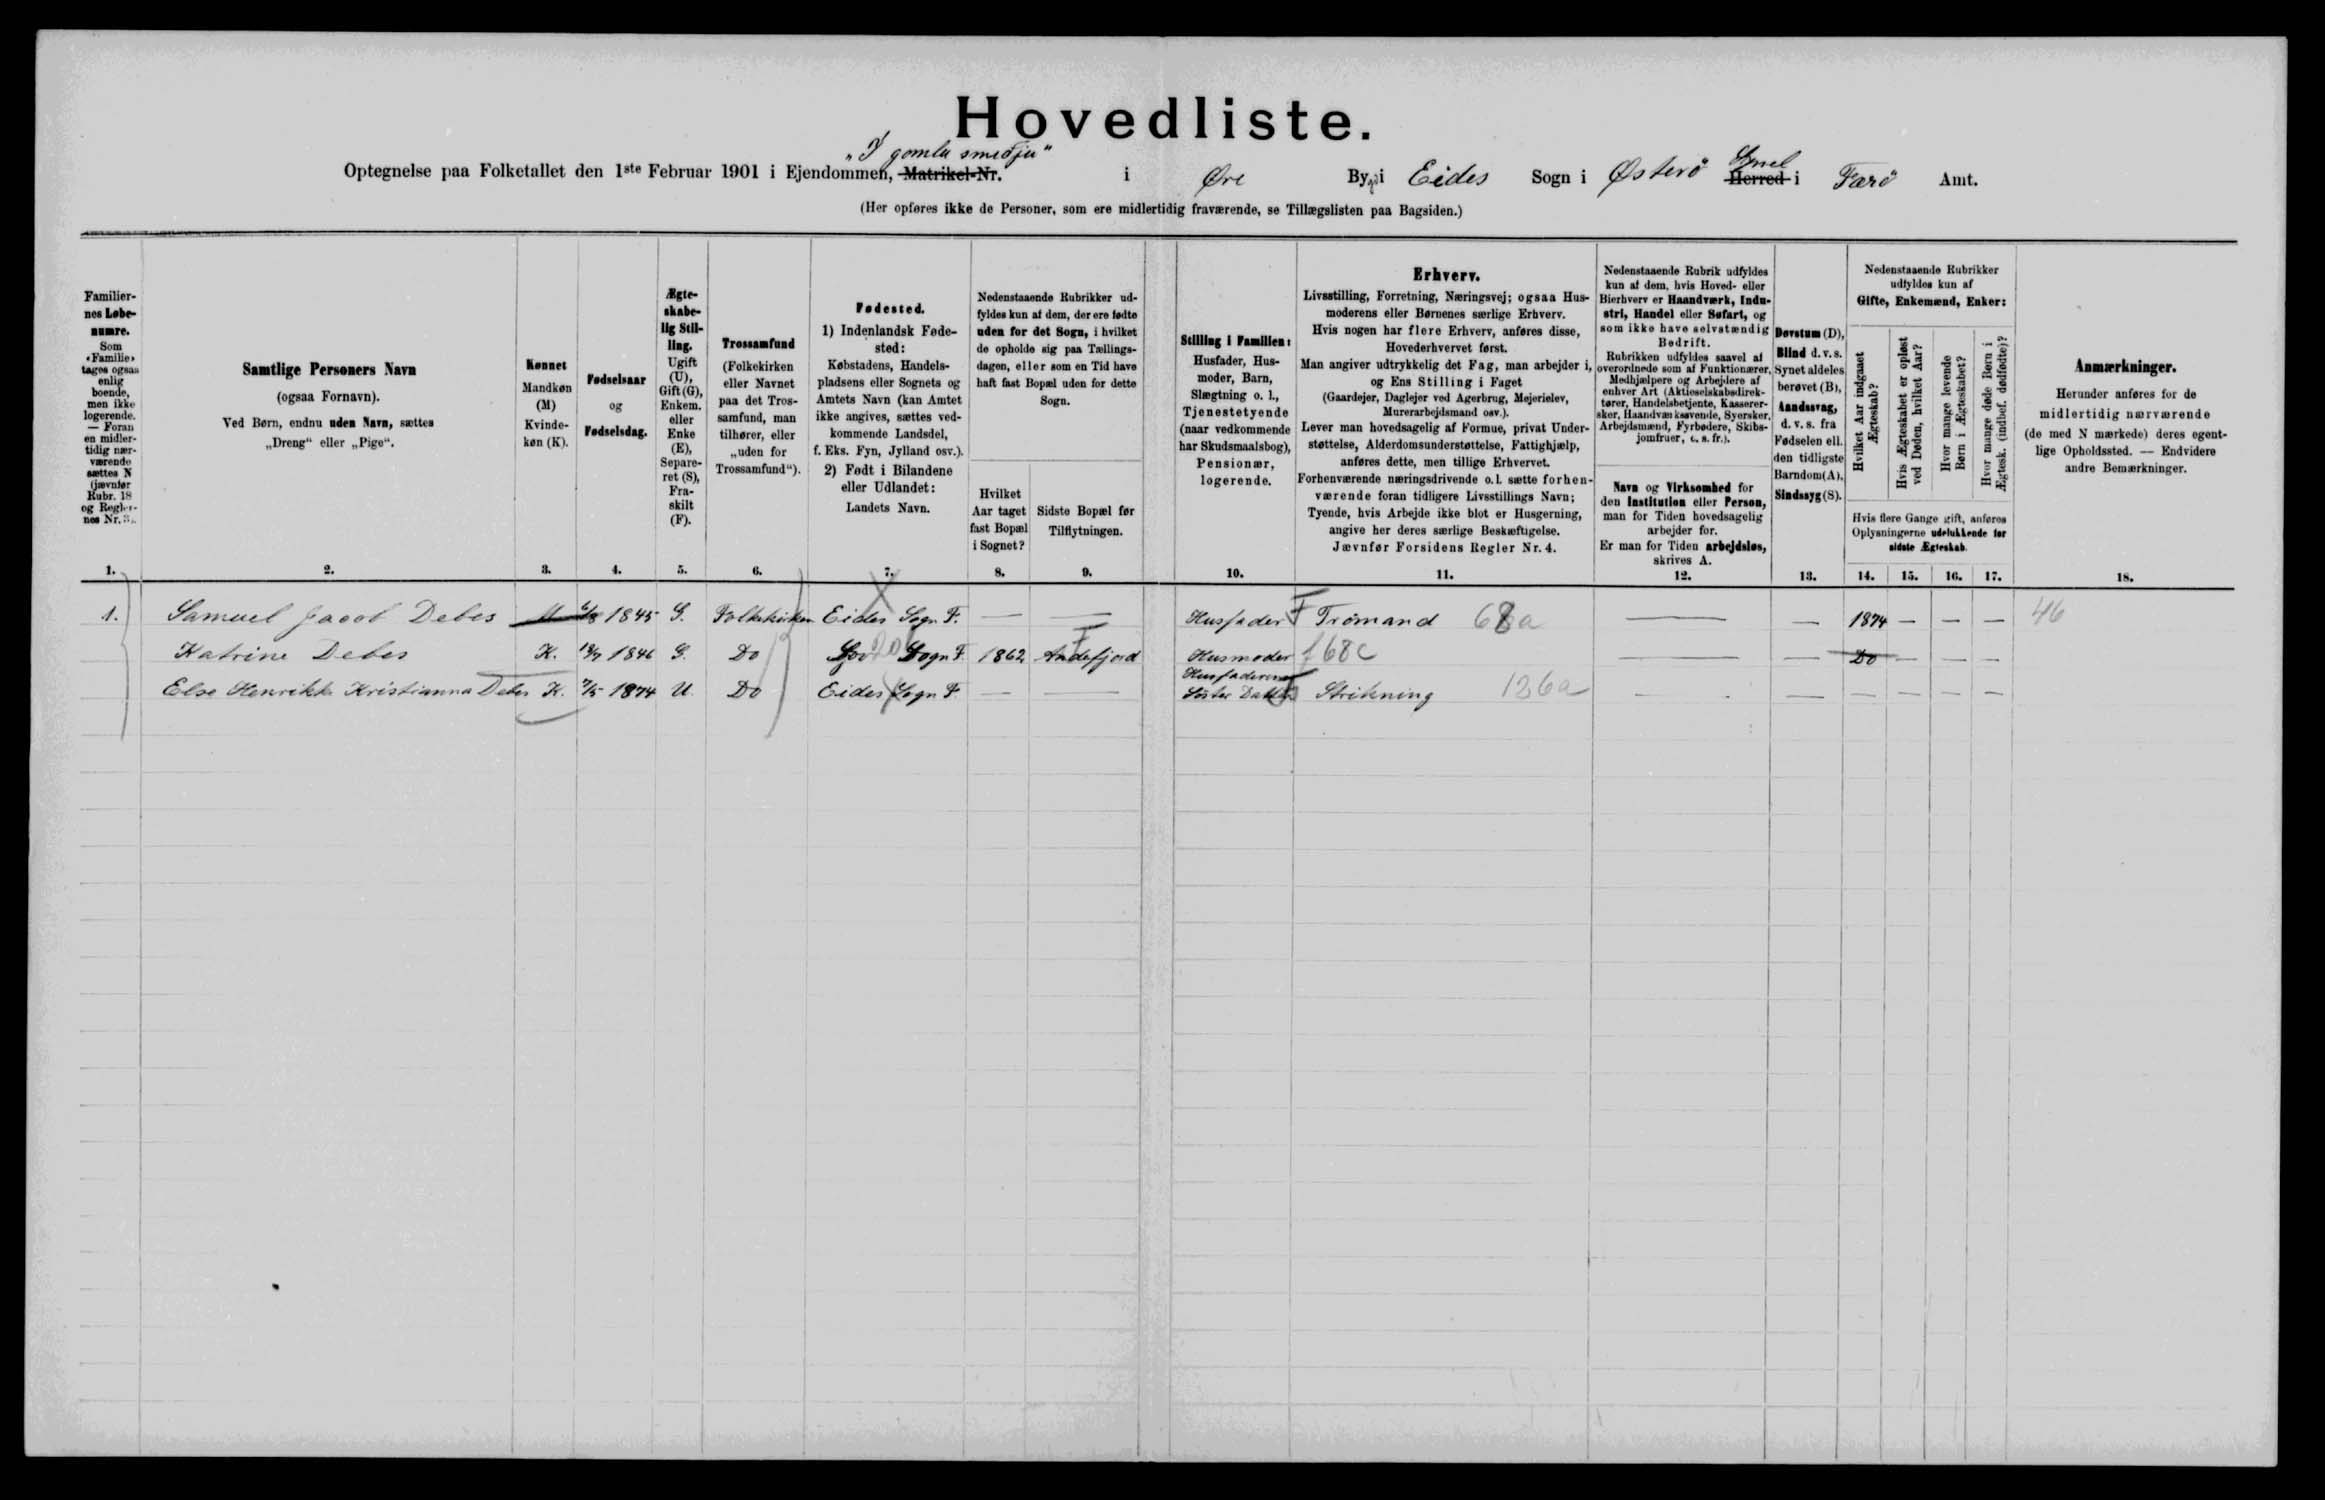 Hovedliste.
„I gomlu smedju"
Optegnelse paa Folketallet den 1ste Februar 1901 i Ejendommen, Matrikel-Nr. i Øre Bygd i Eides Sogn i Østerø Syssel Herred i Færø Amt.
(Her opføres ikke de Personer, som ere midlertidig fraværende, se Tillægslisten paa Bagsiden.)
Familier-
nes Løbe-
numre.
Som
«Familie»
tages ogsaa
enlig
boende,
men ikke
logerende.
— Foran
en midler-
tidig nær-
værende
sættes N
(jævnfør
Rubr. 18
og Regler-
nes Nr. 3).
1.
Samtlige Personers Navn
(ogsaa Fornavn).
Ved Børn, endnu uden Navn, sættes
„Dreng" eller „Pige".
2.
Kønnet
Mandkøn
(M)
Kvinde-
køn (K).
3.
Fødselsaar
og
Fødselsdag.
4.
Ægte-
skabe-
lig Stil-
ling.
Ugift
(U),
Gift (G),
Enkem.
eller
Enke
(E),
Separe-
ret (S),
Fra-
skilt
(F).
5.
Trossamfund
(Folkekirken
eller Navnet
paa det Tros-
samfund, man
tilhører, eller
„uden for
Trossamfund").
6.
Fødested.
1) Indenlandsk Føde-
sted:
Købstadens, Handels-
pladsens eller Sognets og
Amtets Navn (kan Amtet
ikke angives, sættes ved-
kommende Landsdel,
f. Eks. Fyn, Jylland osv.).
2) Født i Bilandene
eller Udlandet:
Landets Navn.
7.
Nedenstaaende Rubrikker ud-
fyldes kun af dem, der ere fødte
uden for det Sogn, i hvilket
de opholde sig paa Tællings-
dagen, eller som en Tid have
haft fast Bopæl uden for dette
Sogn.
Hvilket
Aar taget
fast Bopæl
i Sognet?
8.
Sidste Bopæl før
Tilflytningen.
9.
Stilling i Familien:
Husfader, Hus-
moder, Barn,
Slægtning o. l.,
Tjenestetyende
(naar vedkommende
har Skudsmaalsbog),
Pensionær,
logerende.
10.
Erhverv.
Livsstilling, Forretning, Næringsvej; ogsaa Hus-
moderens eller Børnenes særlige Erhverv.
Hvis nogen har flere Erhverv, anføres disse,
Hovederhvervet først.
Man angiver udtrykkelig det Fag, man arbejder i,
og Ens Stilling i Faget
(Gaardejer, Daglejer ved Agerbrug, Mejerielev,
Murerarbejdsmand osv.).
Lever man hovedsagelig af Formue, privat Under-
støttelse, Alderdomsunderstøttelse, Fattighjælp,
anføres dette, men tillige Erhvervet.
Forhenværende næringsdrivende o.l. sætte forhen-
værende foran tidligere Livsstillings Navn;
Tyende, hvis Arbejde ikke blot er Husgerning,
angive her deres særlige Beskæftigelse.
Jævnfør Forsidens Regler Nr. 4.
11.
Nedenstaaende Rubrik udfyldes
kun af dem, hvis Hoved- eller
Bierhverv er Haandværk, Indu-
stri, Handel eller Søfart, og
som ikke have selvstændig
Bedrift.
Rubrikken udfyldes saavel af
overordnede som af Funktionærer,
Medhjælpere og Arbejdere af
enhver Art (Aktieselskabsdirek-
tører, Handelsbetjente, Kasserer-
sker, Haandværkssvende, Syersker,
Arbejdsmænd, Fyrbødere, Skibs-
jomfruer, o. s. fr.).
Navn og Virksomhed for
den Institution eller Person,
man for Tiden hovedsagelig
arbejder for.
Er man for Tiden arbejdsløs,
skrives A.
12.
Døvstum (D),
Blind d. v. s.
Synet aldeles
berøvet (B),
Aandssvag,
d. v. s. fra
Fødselen ell.
den tidligste
Barndom (A),
Sindssyg (S).
13.
Nedenstaaende Rubrikker
udfyldes kun af
Gifte, Enkemænd, Enker:
Hvilket Aar indgaaet
Ægteskab?
Hvis Ægteskabet er opløst
ved Døden, hvilket Aar?
Hvor mange levende
Børn i Ægteskabet?
Hvor mange døde Børn i
Ægtesk. (indbef. dødfødte)?
Hvis flere Gange gift, anføres
Oplysningerne udelukkende for
sidste Ægteskab.
14. 15. 16. 17.
Anmærkninger.
Herunder anføres for de
midlertidig nærværende
(de med N mærkede) deres egent-
lige Opholdssted. — Endvidere
andre Bemærkninger.
18.
1. Samuel Jacob Debes M 1845 G. Folkekirken Eides Sogn F. — — Husfader F Trømand 68a — — 1874 — — — 46
Katrine Debes K. 1846 G. Do Sogn F. 1862 Andefjord Husmoder f 68c — — Do — — —
Else Henrikke Kristianna Debes K. 7/5 1874 U. Do Eides Sogn F. — — Husfaderens Søster Datter Strikning 126a — — — — — —